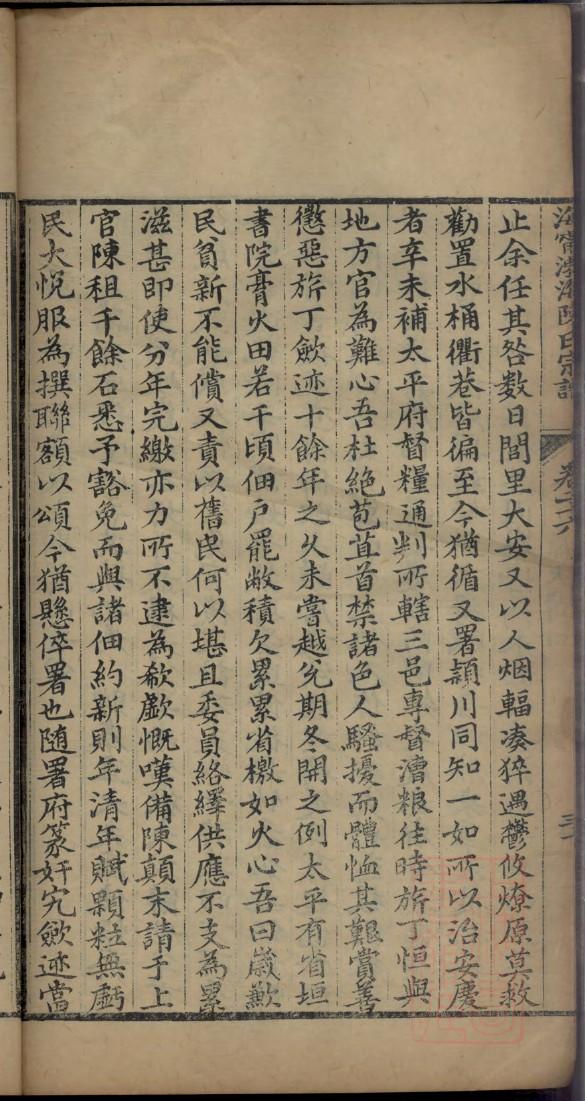 海寧渤海陳氏宗譜
卷二十六
止余任其咎数日閭里大安又以人烟輻凑猝遇鬱攸燎原莫救
勸置水桶衢巷皆徧至今猶循又署潁川同知一如所以治安慶
者辛未補太平府督糧通判所轄三邑專督漕粮往時旂丁恒與
地方官為難心吾杜絶苞苴首禁諸色人騷擾而體恤其艱賞善
懲惡旂丁歛迹十餘年之久未嘗越兊期冬開之例太平有省垣
書院膏火田若干頃佃户罷敝積欠累累省檄如火心吾曰歲歉
民貧新不能償又責以舊民何以堪且委員絡繹供應不支為累
滋甚即使分年完繳亦力所不逮為欷歔慨嘆備陳顛末請于上
官陳租千餘石悉予豁免而與諸佃約新則年清年賦顆粒無虧
民大悦服為撰聯額以頌今猶懸倅署也随署府篆奸宄歛迹當